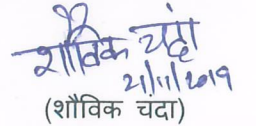 शौविक चंदा
21/11/2019
(शौविक चंदा)